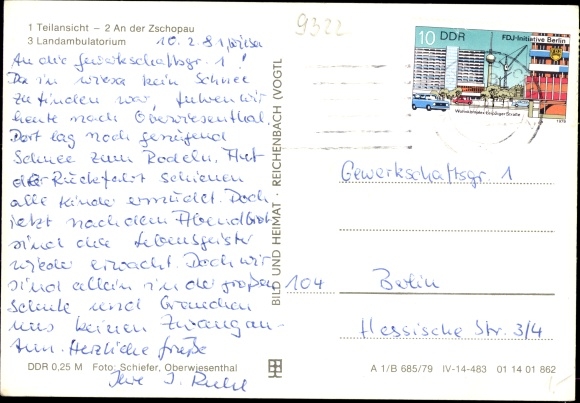 1 Teilansicht – 2 An der Zschopau
3 Landambulatorium
9322
10.2.81, Wiesa
An die Gewerkschaftsgr. 1!
Da in Wiesa kein Schnee
zu finden war, fuhren wir
heute nach Oberwiesenthal.
Dort lag noch genügend
Schnee zum Rodeln. Auf
der Rückfahrt schienen
alle Kinder ermüdet. Doch
jetzt nach dem Abendbrot
sind die Lebensgeister
wieder erwacht. Doch wir
sind allein in der großen
Schule und brauchen
uns keinen Zwang an-
tun. Herzliche Grüße
Ihre I.
DDR 0,25 M Foto: Schiefer, Oberwiesenthal
BILD UND HEIMAT REICHENBACH (VOGTL
10 DDR FDJ-Initiative Berlin
Wohnkomplex Leipziger Straße
1979
Gewerkschaftsgr. 1
104 Berlin
Hessische Str. 3/4
A 1/B 685/79 IV-14-483 01 14 01 862